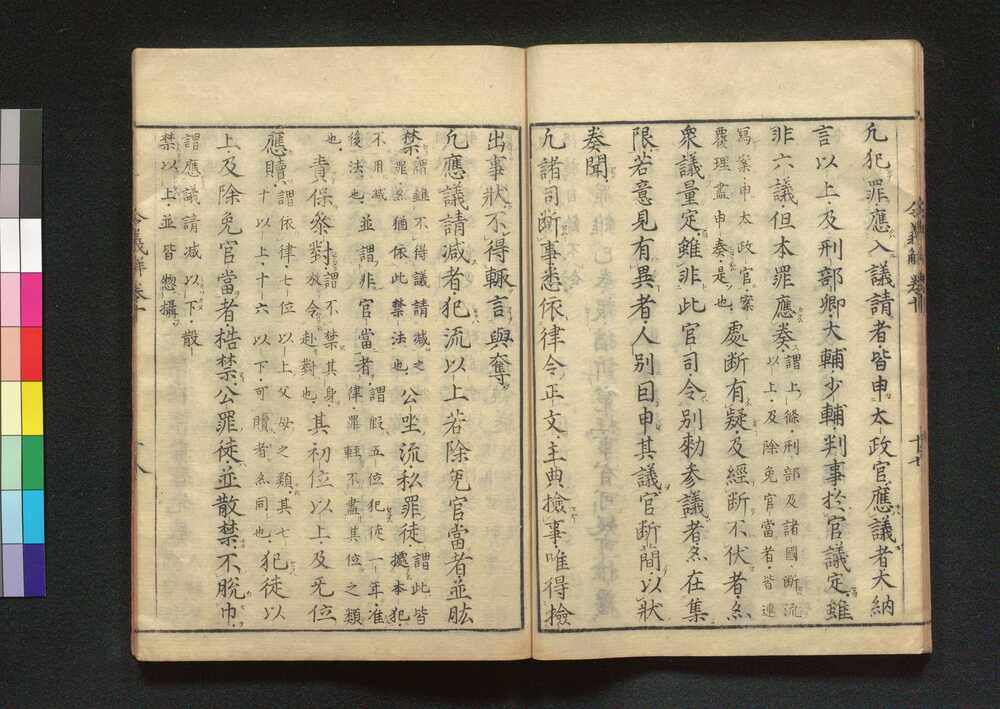 凢犯罪應入議請者皆申太政官應議者大納
言以上及刑部卿大輔少輔判事於官議定雖
非六議但本罪應奏謂上條刑部及諸國斷流以上及除免官當者皆連
寫案申太政官案覆理盡申奏是也處斷有疑及經斷不伏者亦
衆議量定雖非此官司令別勑參議者亦在集
限若意見有異者人別因申其議官斷簡以狀
奏聞
凢諸司斷事悉依律令正文主典撿事唯得撿
令義解卷十
十七
令義解卷十
十八
出事狀不得輙言與奪
凢應議請减者犯流以上若除免官當者並肱
禁謂雖不得議請减之罪系猶依此禁法也公坐流私罪徒謂此皆據本犯
不用减後法也並謂非官當者謂假五位犯徒一年准律罪輕不盡其位之類
也責保參對謂不禁其身放令赴對也其初位以上及旡位
應贖謂依律七位以上父母之類其七十以上十六以下可贖者亦同也犯徒以
上及除免官當者梏禁公罪徒並散禁不脫巾
謂應議請减以下散禁以上並皆惣攝